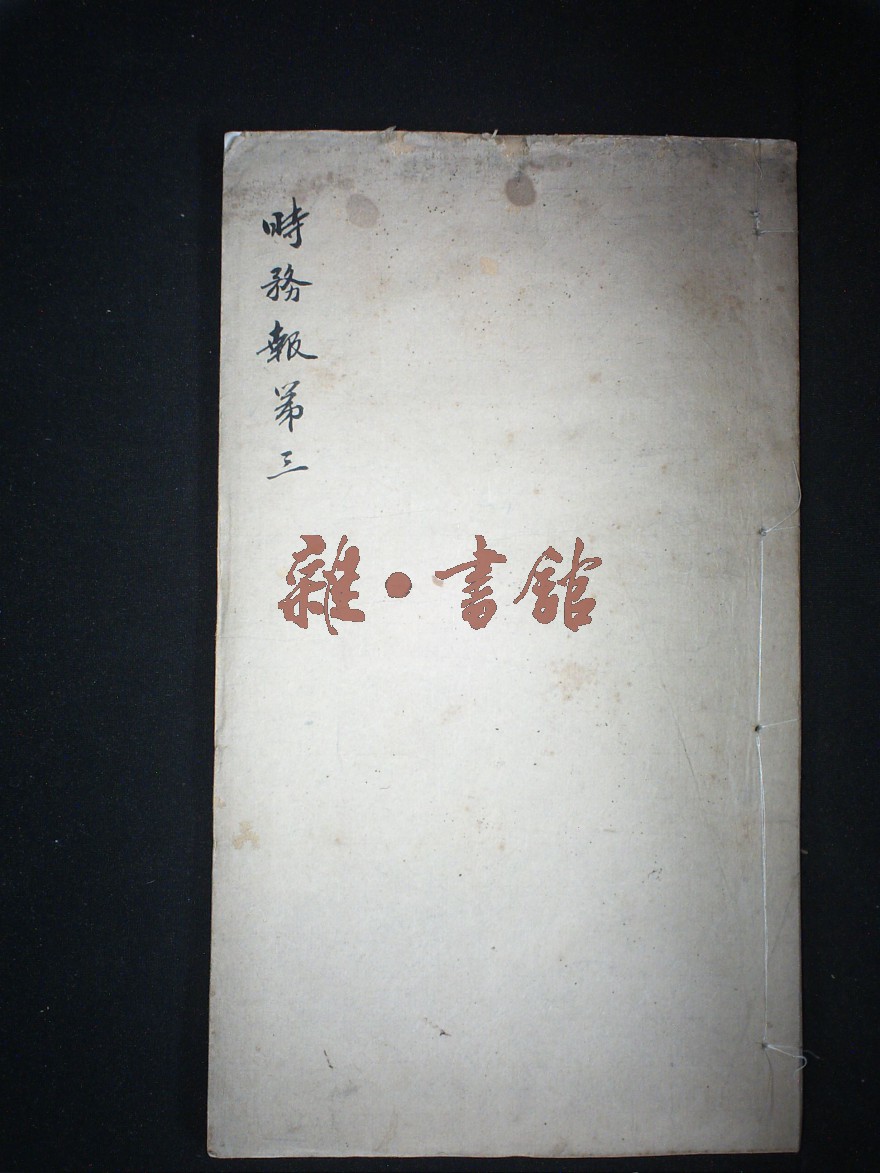 時務報第三
雜·書館